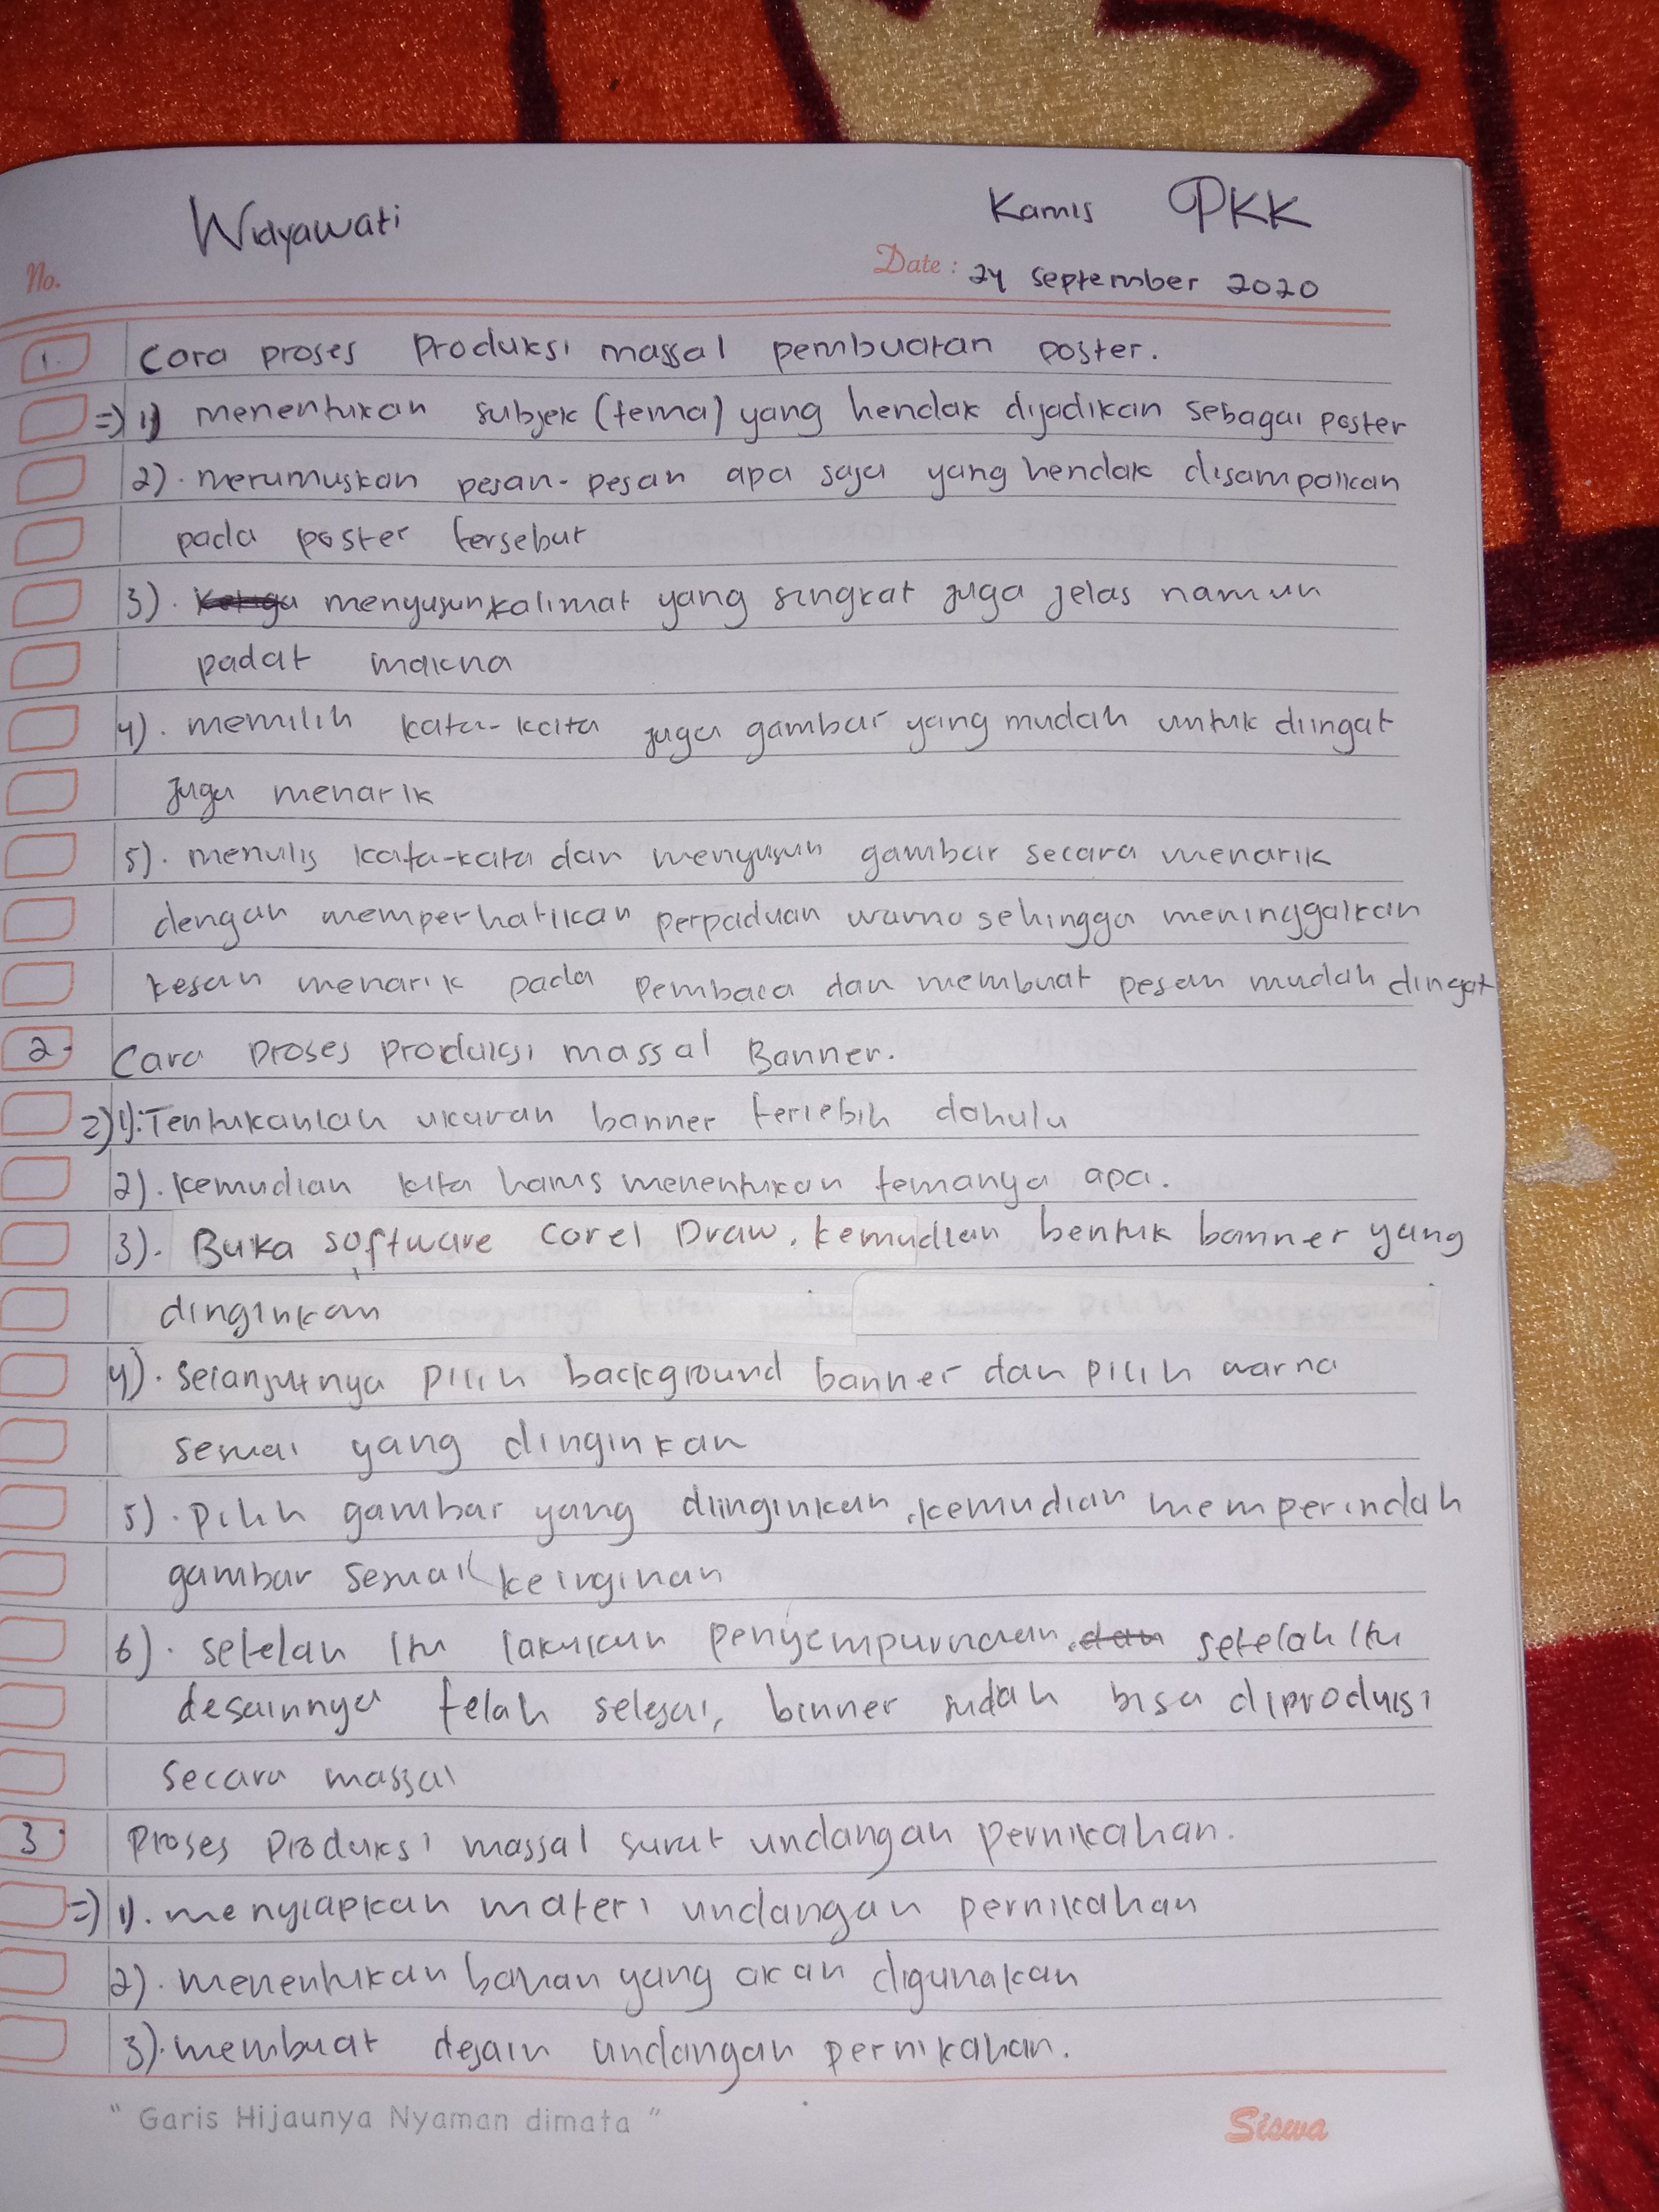 Widyawati
Kamis PKK
No.
Date : 24 September 2020
1. Cara proses produksi massal pembuatan poster.
=) 1) menentukan subjek (tema) yang hendak dijadikan sebagai poster
2). merumuskan pesan-pesan apa saja yang hendak disampaikan
pada poster tersebut
3). menyusun kalimat yang singkat juga jelas namun
padat makna
4). memilih kata-kata juga gambar yang mudah untuk diingat
juga menarik
5). menulis kata-kata dan menyusun gambar secara menarik
dengan memperhatikan perpaduan warna sehingga meninggalkan
kesan menarik pada pembaca dan membuat pesan mudah diingat
2. Cara proses produksi massal Banner.
=) 1). Tentukanlah ukuran banner terlebih dahulu
2). kemudian kita harus menentukan temanya apa.
3). Buka software Corel Draw, kemudian bentuk banner yang
dinginkan
4). selanjutnya pilih background banner dan pilih warna
sesuai yang dinginkan
5). pilih gambar yang diinginkan, kemudian memperindah
gambar sesuai keinginan
6). setelah itu lakukan penyempurnaan, dan setelah itu
desainnya telah selesai, binner sudah bisa diproduksi
secara massal
3. Proses produksi massal surat undangan pernikahan.
=) 1). menyiapkan materi undangan pernikahan
2). menentukan bahan yang akan digunakan
3). membuat desain undangan pernikahan.
" Garis Hijaunya Nyaman dimata "
Siswa